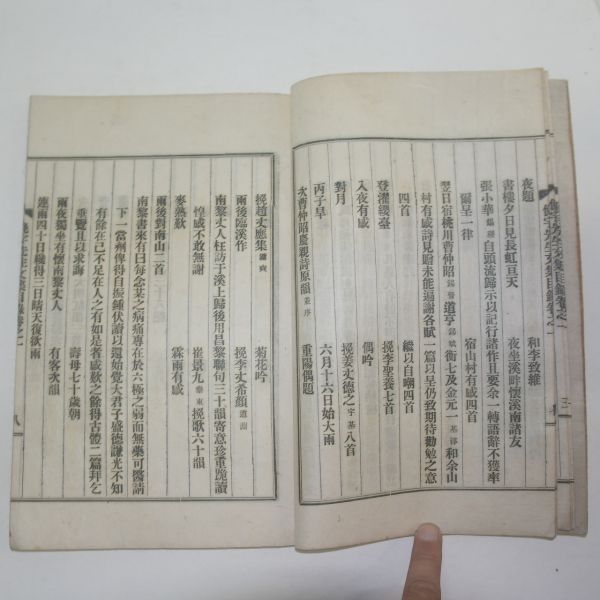 夜題　和李致維
書樓夕日見長虹亘天　夜坐溪畔懷溪南諸友
張小華自頭流歸示以記行諸作且要余一轉語辭不獲率
爾呈一律　宿山村有感四首
翌日宿桃川曹仲昭道亨衡七及金元一和余山
村有感詩見贈未能遏謝各賦一篇以呈仍致期待勸勉之意
四首　繼以自嘲四首
登灌纓臺　挽李聖養七首
入夜有感　偶吟
對月　挽姜丈德之八首
丙子旱　六月十六日始大雨
次曹仲昭慶親詩原韻並序　重陽偶題
挽趙丈應集　菊花吟
雨後臨溪作　挽李丈希顔
南黎丈人枉訪于溪上歸後用昌黎聯句三十韻寄意珍重跪讀
惶感不敢無謝　崔景九挽歌六十韻
麥熟歎　霖雨有感
雨後對南山二首
南黎書來有曰每念某之病痛專在於六極之弱而無藥可醫請
下一當劑俾得自振鍾伏讀以還始覺大君子盛德謙光不知
有餘在己不足在人之有如是者感歎之餘得古體二篇拜乞
垂覽且以求誨　壽母七十歲朝
雨夜獨坐有懷南黎丈人　有客次韻
連雨四十日纔得三日晴天復欲雨
八